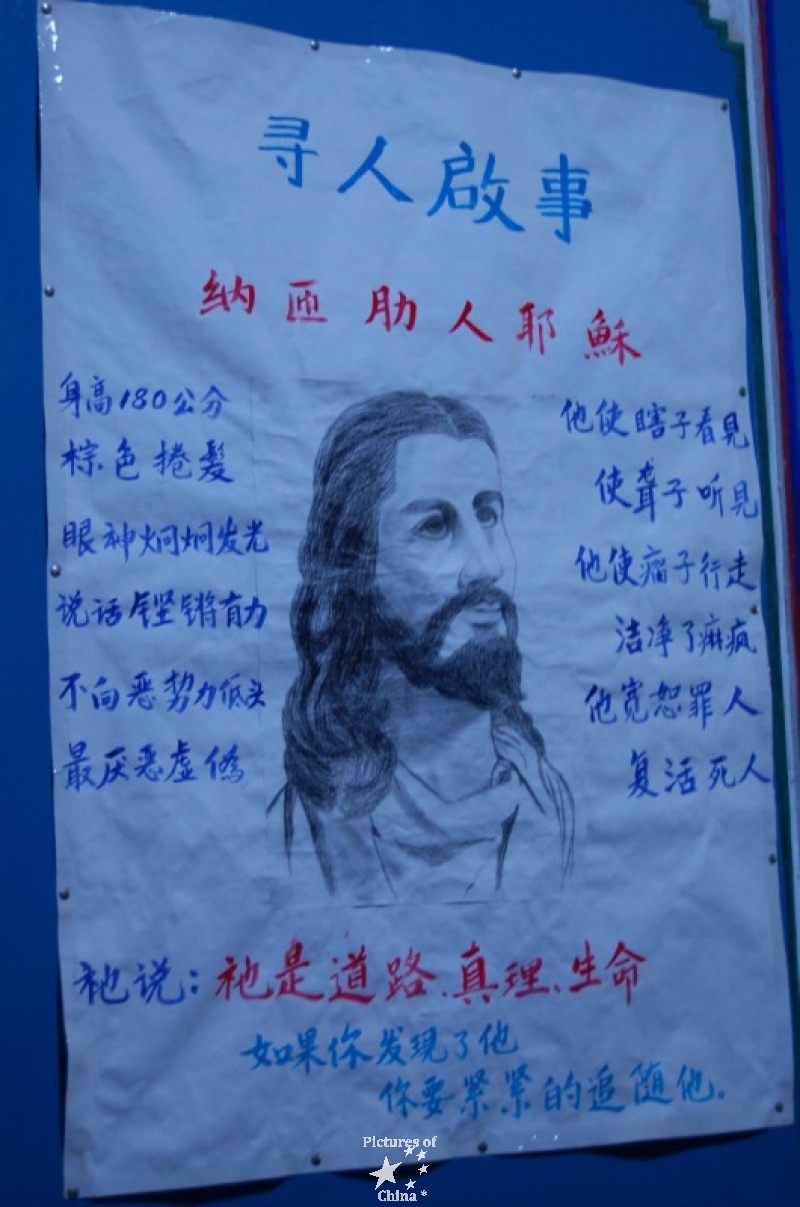 寻人啟事
纳匝肋人耶穌
身高180公分
棕色捲髮
眼神炯炯发光
说话铿锵有力
不向恶势力低头
最厌恶虚偽
他使瞎子看見
使聋子听見
他使瘸子行走
洁净了痲疯
他宽恕罪人
复活死人
祂说:祂是道路、真理、生命
如果你发現了他
你要紧紧的追随他。
Pictures of
China *